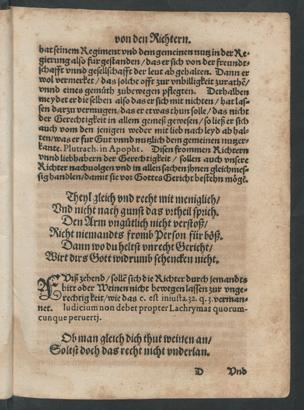 von den Richtern.
hat seinem Regiment vnd dem gemeinen nutz in der Re-
gierung also fürgestanden / das er sich von der freundt-
schafft vnnd gesellschafft der leut abgehalten. Dann er
wol vermercket / das solche offt zur vnbilligkeit zurathē/
vnnd eines gemüth zubewegen pflegten. Derhalben
meydet er die selben also das er sich mit nichten / hat las-
sen darzu vermugen, das er etwas thun solle / das nicht
der Gerechtigkeit in allem gemeß gewesen / so ließ er sich
auch vom den jenigen weder mit lieb nach leyd ab hal-
ten / was er fur Gut vnnd nutzlich dem gemeinen nutz er-
kante. Plutrach. in Apopht. Disen frommen Richtern
vnnd liebhabern der Gerechtigkeit / sollen auch vnsere
Richter nachuolgen vnd in allen sachen jhnen gleichmes-
sig handlen / damit sie vor Gottes Gericht bestehn mögē.
Theyl gleich vnd recht mit meniglich /
Vnd nicht nach gunst das vrtheil sprich.
Den Arm vngütlich nicht verstoß /
Richt niemandts fromb Person für böß.
Dann wo du heltst vnrecht Gericht /
Wirt dirs Gott widrumb schencken nicht.
FViß zehend / solle sich die Richter durch jemandts
bitt oder Weinen nicht bewegen lassen zur vnge-
rechtigkeit / wie das c. est iniusta 32. q. 3. verman-
net. Iudicium non debet propter Lachrymas quorum-
cunque peruerti.
Ob man gleich dich thut weinen an /
Soltst doch das recht nicht vnderlan.
D Vnd